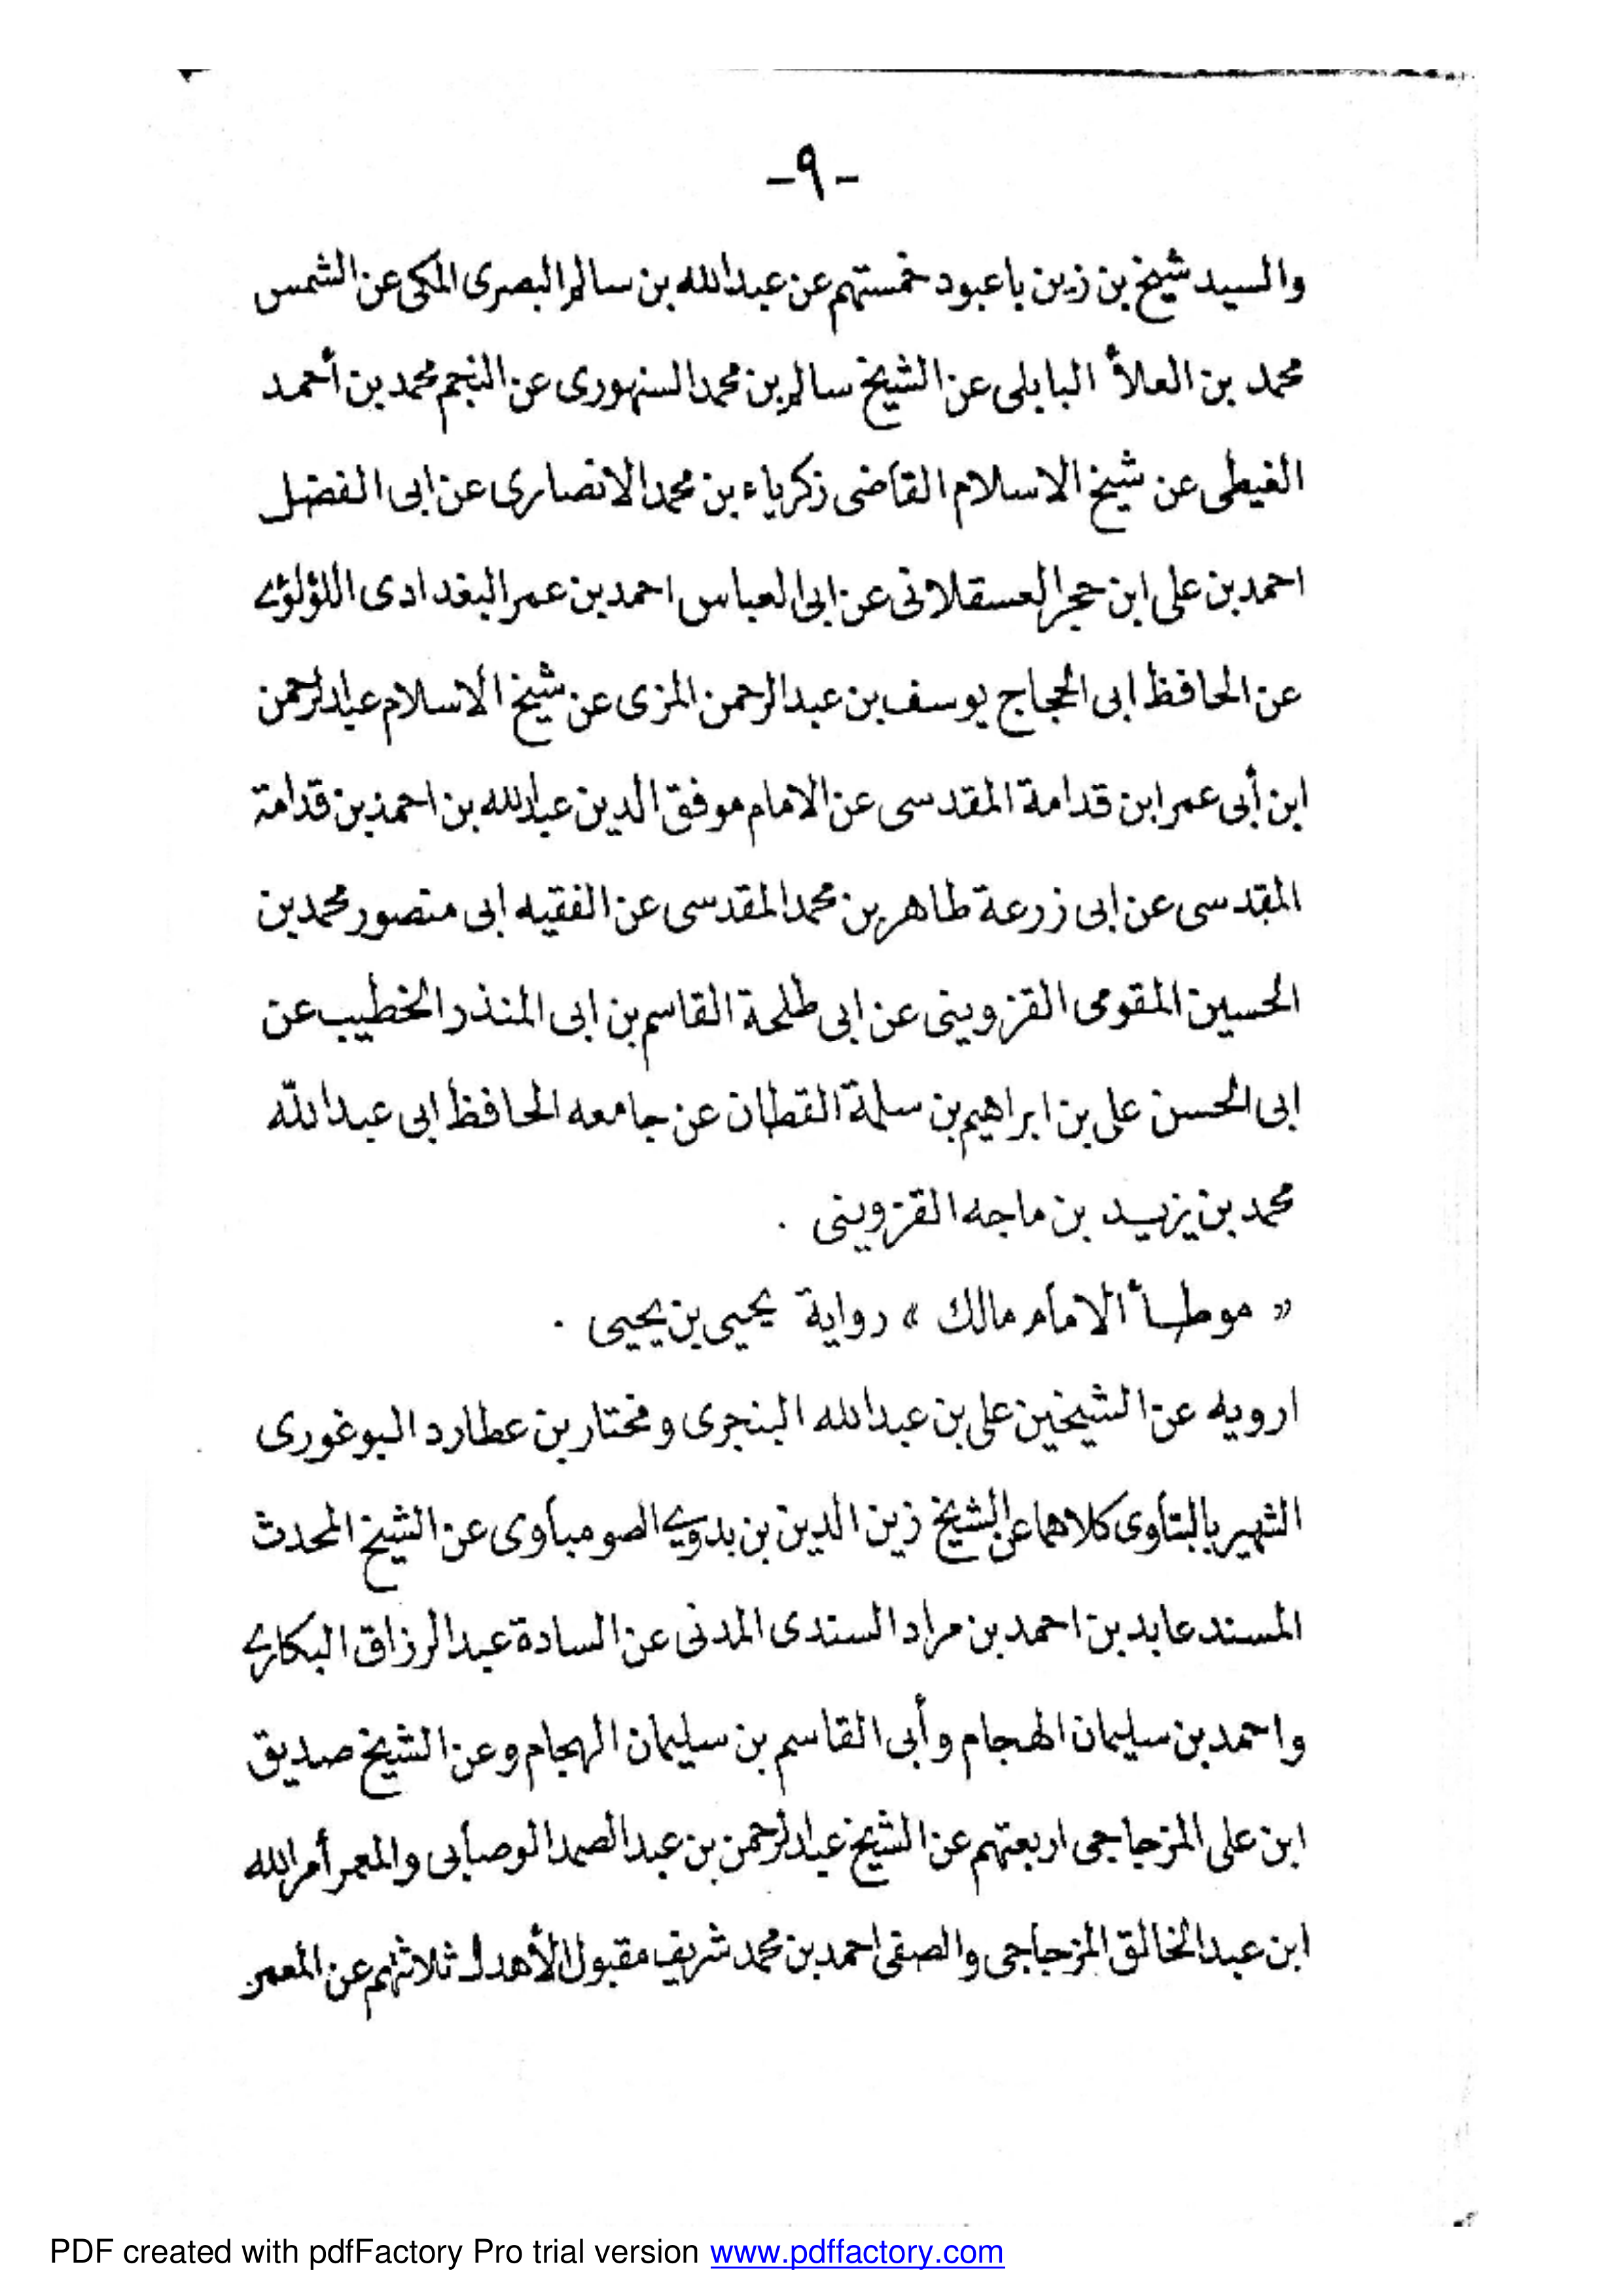 -٩-
والسيد شيخ بن زين باعبود خمستهم عن عبدالله بن سالم البصرى المكى عن الشمس
محمد بن العلاء البابلى عن الشيخ سالم بن محمد السنهورى عن النجم محمد بن أحمد
الغيطى عن شيخ الاسلام القاضى زكرياء بن محمد الانصارى عن ابى الفضل
احمد بن على ابن حجر العسقلانى عن ابى العباس احمد بن عمر البغدادى اللؤلؤى
عن الحافظ ابى الحجاج يوسف بن عبد الرحمن المزى عن شيخ الاسلام عبد الرحمن
ابن أبى عمر ابن قدامة المقدسى عن الامام موفق الدين عبد الله بن احمد بن قدامة
المقدسى عن ابى زرعة طاهر بن محمد المقدسى عن الفقيه ابى منصور محمد بن
الحسين المقومى القزوينى عن ابى طلحة القاسم بن ابى المنذر الخطيب عن
ابى الحسن على بن ابراهيم بن سلمة القطان عن جامعه الحافظ ابى عبدالله
محمد بن يزيد بن ماجه القزوينى .
« موطأ الامام مالك » رواية يحيى بن يحيى .
ارويه عن الشيخين على بن عبدالله البنجرى ومختار بن عطارد البوغورى
الشهير بالبتاوى كلاهما عن الشيخ زين الدين بن بدوي الصومباوى عن الشيخ المحدث
المسند عابد بن احمد بن مراد السندى المدنى عن السادة عبد الرزاق البكارى
واحمد بن سليمان الهجام وأبى القاسم بن سليمان الهجام وعن الشيخ صديق
ابن على المزجاجى اربعتهم عن الشيخ عبد الرحمن بن عبد الصمد الوصابى والمعمر أمر الله
ابن عبد الخالق المزجاجى والصفى احمد بن محمد شريف مقبول الأهدل ثلاثتهم عن المعمر
PDF created with pdfFactory Pro trial version www.pdffactory.com